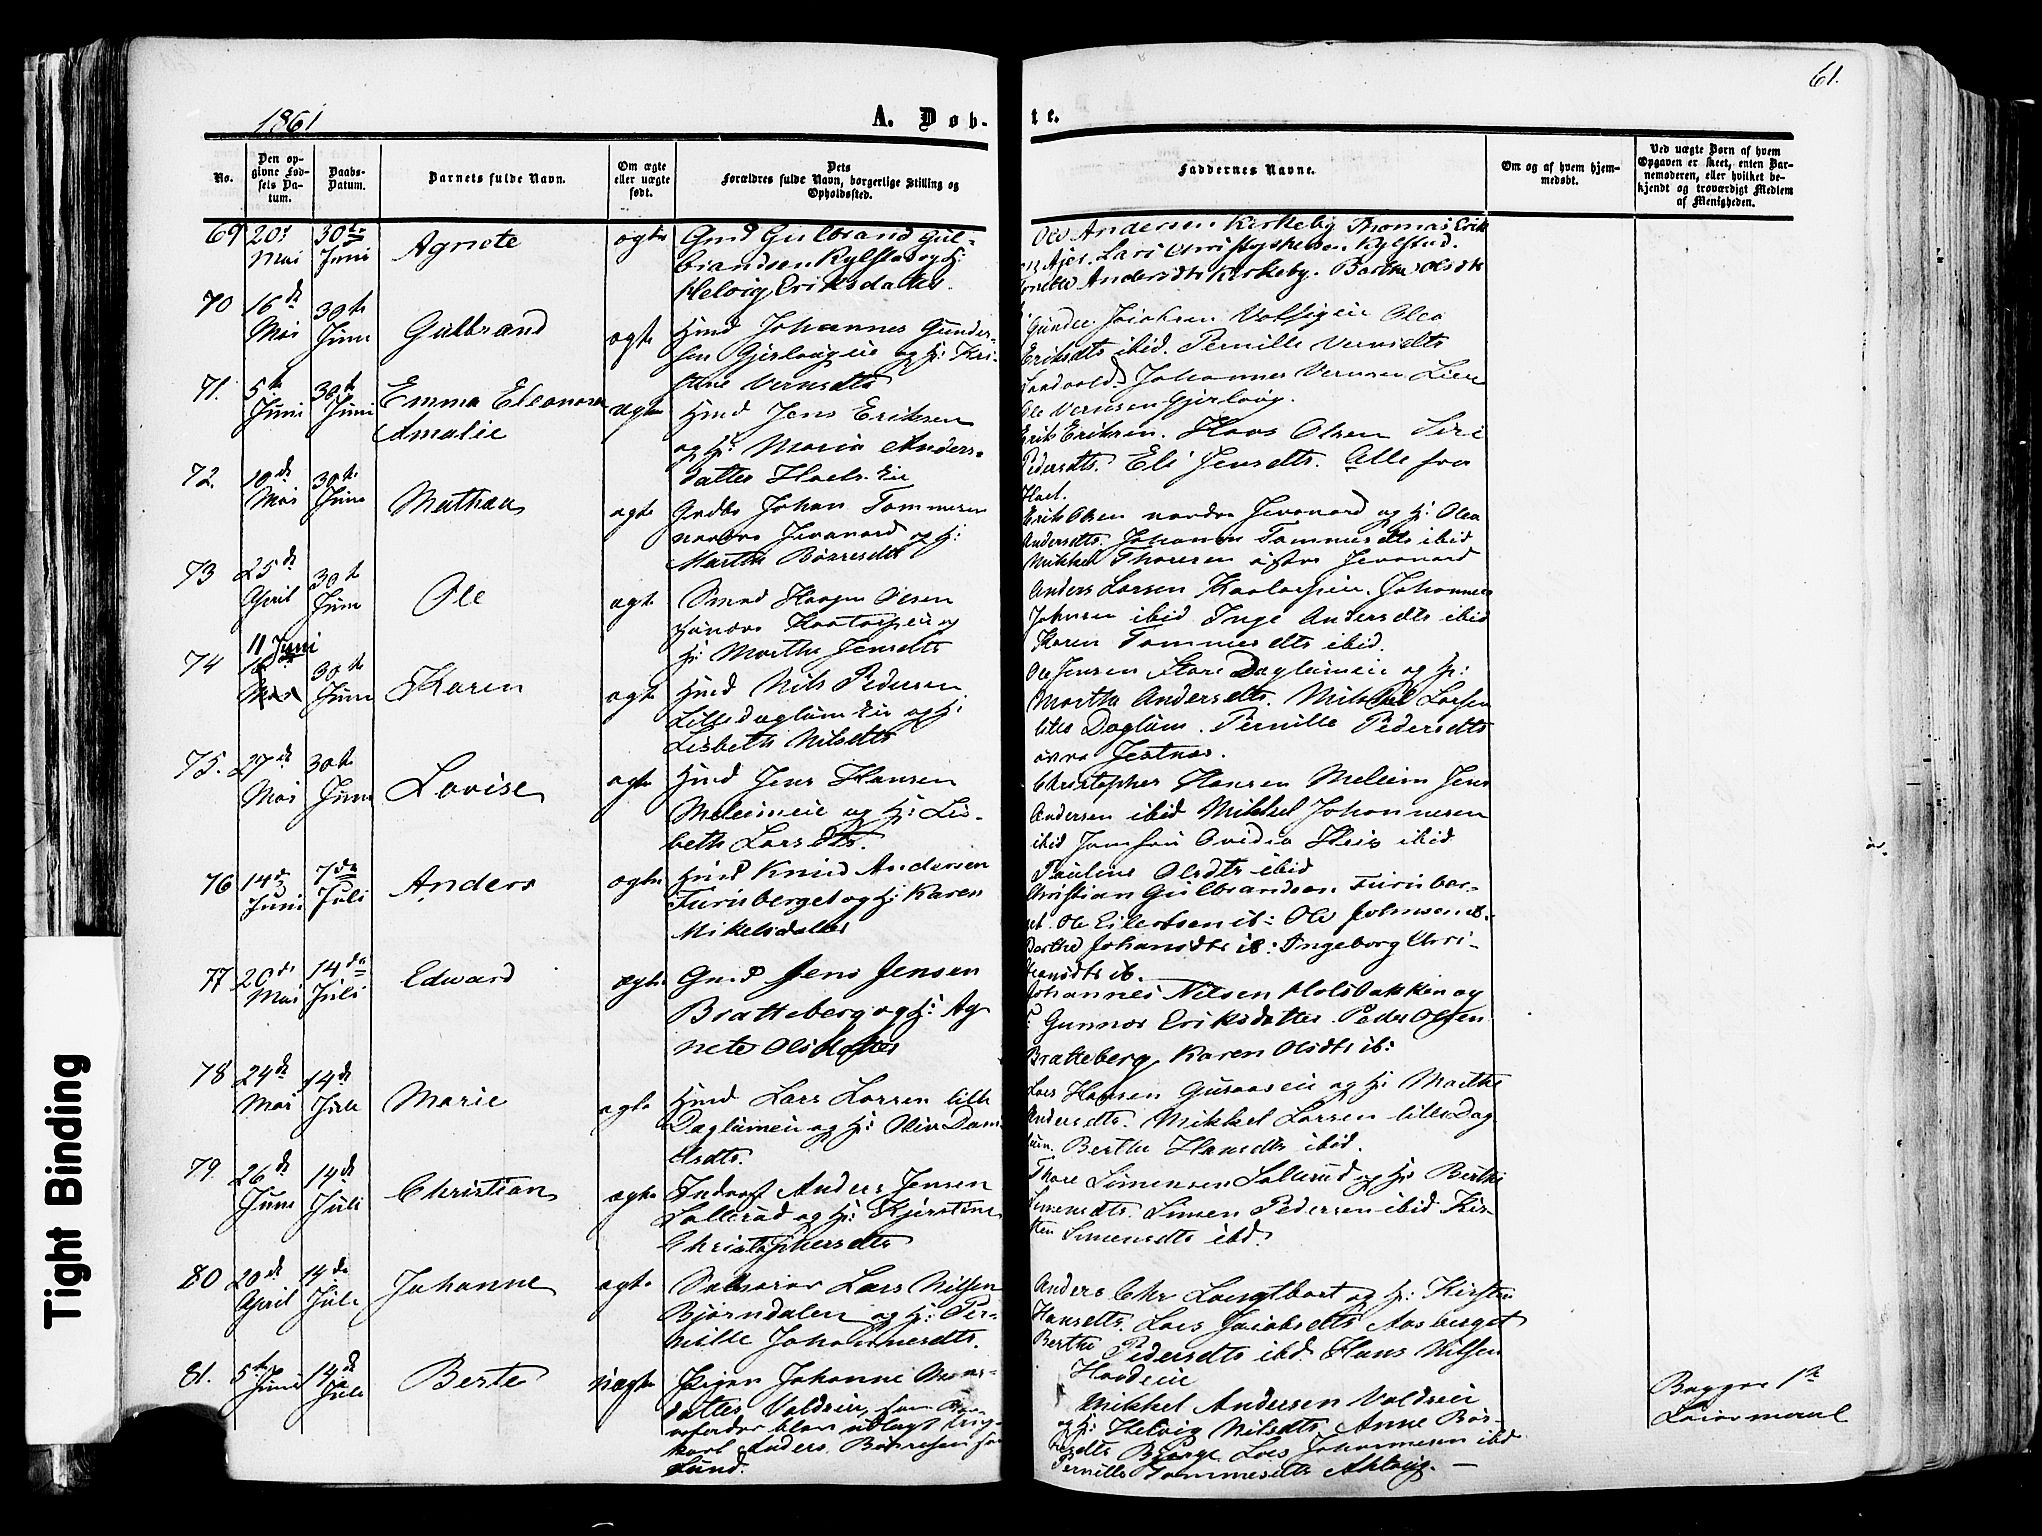 61.
1861
A. Døb-
te.
No.
Den op-
givne Fød-
sels Da-
tum.
Daabs-
Datum.
Barnets fulde Navn.
Om ægte
eller uægte
født.
Dets
Forældres fulde Navn, borgerlige Stilling og
Opholdssted.
Faddernes Navne.
Om og af hvem hjem-
medøbt.
Ved uægte Børn af hvem
Opgaven er skeet, enten Bar-
nemoderen, eller hvilket be-
kjendt og troværdigt Medlem
af Menigheden.
69 20de Mai 30te Juni Agnete ægte Gmd Gulbrand Gul-
brandsen Rylstad og H:
Helvig Eriksdatter.
Ole Andersen Kirkeby Thomas Erik
Lars Christophersen Rylstad.
Andersdtr Kirkeby. Barthe Olsdtr
70 16de Mai 30te Juni Gulbrand ægte Hmd Johannes Gunder-
sen Gjerløugeie og H: Kri-
stine Vernsdtr
Eriksdtr ibid. Pernille Vernsdtr
Johannes Vernsen Lie
Ole Vernsen Gjerløug.
71. 5te Juni 30te Juni Emma Eleonora
Amalie ægte Hmd Jens Eriksen
og H: Maria Anders-
datter Hoels Eie
Erik Eriksen. Hans Olsen Siri
Pedersdtr. Eli Jensdtr. Alle fra
Hoel.
72. 10de Mai 30te Juni Mathea ægte Johan Tommesen
nordre Jevanord og H:
Martha Børresdtr
Erik Olsen nordre Jevanord og H: Olea
Andersdtr. Johanne Tommesdtr ibid
Mikkel Thoresen østre Jevanord
73 25de April 30te Juni Ole ægte Haagen Olsen
og
H: Marthe Jensdtr
Anders Larsen Johannes
Johnsen ibid Inge Andersdtr ibid
Karen Tommesdtr ibid.
74 11 Juni
Mai 30te Juni Karen ægte Hmd Nils Pedersen
Lilledaglum Eie og H:
Lisbeth Nilsdtr
Ole Jensen Store Daglumeie og H:
Marthe Andersdtr. Mikkel Larsen
lille Daglum. Pernille Pedersdtr
øvre Jestnes.
75. 27de Mai 30te Juni Lovise ægte Hmd Jens Hansen
Meleimeie og H: Lis-
beth Larsdtr.
Christopher Hansen Meleim Jens
Andersen ibid Mikkel Johannesen
ibid Jomfru Ovidia Heis ibid
Pauline Olsdtr ibid
76 14de Juni 7de Juli Anders ægte Hmd Knud Andersen
Furuberget og H: Karen
Mikelsdatter
Christian Gulbrandsen Furuber-
get. Ole Eilertsen ib: Ole Johnsen ib.
Berthe Johansdtr ib: Ingeborg Chri-
stiansdtr ib.
77 20de Mai 14de Juli Edward ægte Gmd Jens Jensen
Bratteberg og H: Ag
nete Olsdatter
Johannes Nilsen Holsbakken og
H: Gunnor Eriksdatter. Peder Olsen
Bratteberg Karen Olsdtr ib:
78 24de Mai 14de Juli Marie ægte Hmd Lars Larsen lille
Daglumeie og H: Oliv Dani
elsdtr.
Lars Hansen og H: Marthe
Andersdtr. Mikkel Larsen lille Dag
lum. Berthe Hansdtr ibid.
79. 26de Juni 14de Juli Christian ægte Inderst Anders Jensen
Sollerud og H: Kjerstine
Christophersdtr
Thore Simensen Sollerud og H: Berthe
Simensdtr. Simen Pedersen ibid Kir-
sten Simensdtr ibd.
80 20de April 14de Juli Johanne ægte Lars Nilsen
Bjørndalen og H: Per-
nille Johannesdtr.
Anders Chr og H: Kirsten
Hansdtr. Lars Jacobsdtr Aasberget
Berthe Pedersdtr ibd. Hans Nilsen
81. 5te Juni 14de Juli Berte uægte Pigen Johanne Mons-
datter Voldeie, som Bar-
nefader blev udlagt Ung-
karl Anders Børresen fra
Lund.
Mikkel Andersen Voldeie
og H: Helvig Nilsdtr Anne Bør-
resdtr Lars Johannesen ibd.
Pernille Tommesdtr
Begges 1ste
Leiermaal
Tight Binding